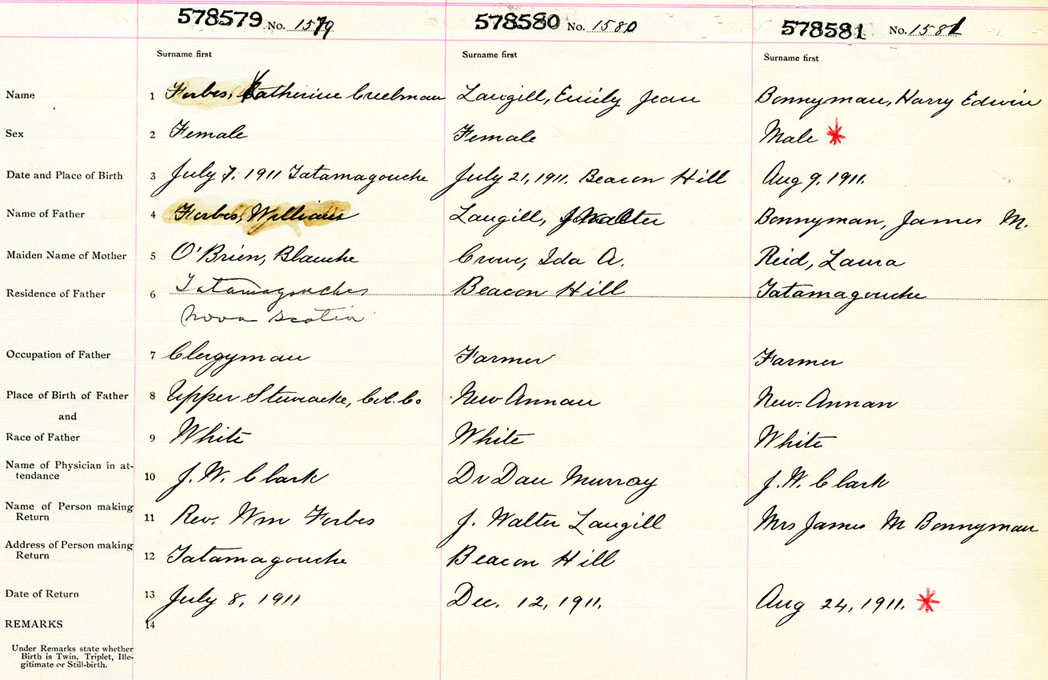 578579 No. 1579 578580 No. 1580 578581 No. 1581
Surname first Surname first Surname first
Name 1 Forbes, Katherine Creelman Langill, Emily Jean Bonnyman, Harry Edwin
Sex 2 Female Female Male *
Date and Place of Birth 3 July 7. 1911 Tatamagouche July 21, 1911. Beacon Hill Aug 9. 1911.
Name of Father 4 Forbes, William Langill, J Walter Bonnyman, James M.
Maiden Name of Mother 5 O'Brien, Blanche Crowe, Ida A. Reid, Laura
Residence of Father 6 Tatamagouche Beacon Hill Tatamagouche
Nova Scotia
Occupation of Father 7 Clergyman Farmer Farmer
Place of Birth of Father 8 Upper Stewiacke, Col. Co New Annan New Annan
and
Race of Father 9 White White White
Name of Physician in at-
tendance 10 J. W. Clark Dr Dan Murray J. W. Clark
Name of Person making
Return 11 Rev. Wm Forbes J. Walter Langill Mrs James M Bonnyman
Address of Person making
Return 12 Tatamagouche Beacon Hill
Date of Return 13 July 8, 1911 Dec. 12, 1911. Aug 24, 1911. *
REMARKS 14
Under Remarks state whether
Birth is Twin, Triplet, Ille-
gitimate or Still-birth.